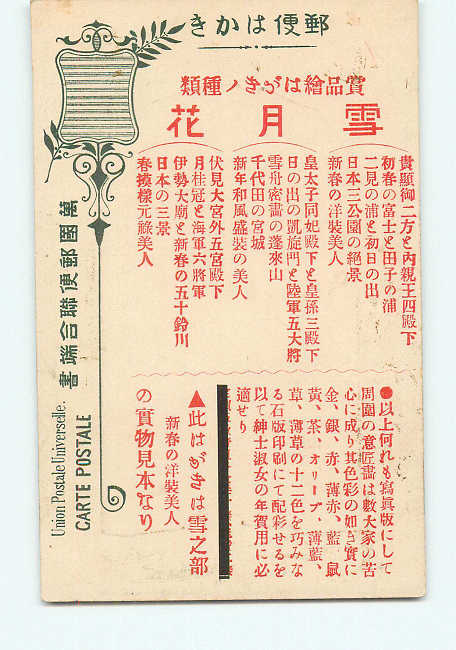 郵便はかき
賞品繪はがきノ種類
雪 月 花
貴顯御二方と內親王四殿下
初春の富士と田子の浦
二見の浦と初日の出
日本三公園の絕景
新春の洋裝美人
皇太子同妃殿下と皇孫三殿下
日の出の凱旋門と陸軍五大將
雪舟密畫の蓬來山
千代田の宮城
新年和風盛裝の美人
伏見大宮外五宮殿下
月桂冠と海軍六將軍
伊勢大廟と新春の五十鈴川
日本の三景
春摸樣元祿美人
●以上何れも寫眞版にして
周圍の意匠畫は數大家の苦
心に成り其色彩の如き實に
金、銀、赤、薄赤、藍、鼠
黃、茶、オリーブ、薄藍、
草、薄草の十二色を巧みな
る石版印刷にて配彩せるを
以て紳士淑女の年賀用に必
適せり
▲此はがきは雪之部
新春の洋裝美人
の實物見本なり
萬國郵便聯合端書
Union Postale Universelle.
CARTE POSTALE